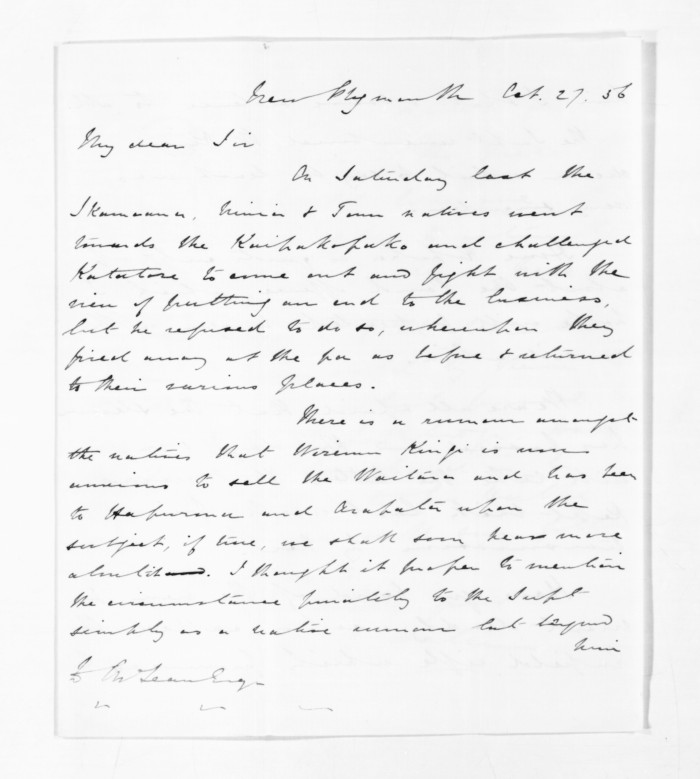 New Plymouth Oct. 27. 56
My dear Sir
On Saturday last the
Ikamoana, Ninia & Town natives went
towards the Kaipakopako and challenged
Katatore to come out and fight with the
view of putting an end to the business,
but he refused to do so, whereupon they
fired away at the pa as before & returned
to their various places.
There is a rumour amongst
the natives that Wiremu Kingi is now
anxious to sell the Waitara and has been
to Hapurona and upon the
subject, if true, we shall soon hear more
about it. I thought it proper to mention
the circumstance privately to the Supt
simply as a native rumour but beyond
him
D McLean Esq